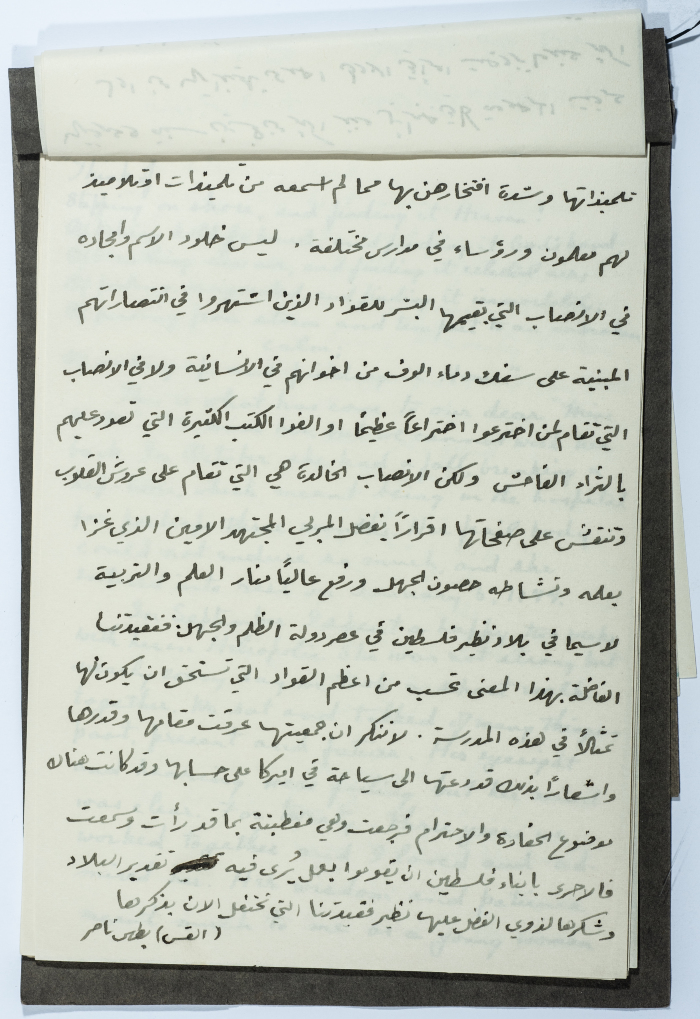 تلميذاتها وشدة افتخارهن بها مما لم اسمعه من تلميذات او تلاميذ
لهم معلمون ورؤساء في مدارس مختلفة . ليس خلود الاسم وامجاده
في الانصاب التي يقيمها البشر للقواد الذين اشتهروا في انتصاراتهم
المبنية على سفك دماء الوف من اخوانهم في الانسانية ولا في الانصاب
التي تقام لمن اخترعوا اختراعاً عظيماً او الفوا الكتب الكثيرة التي تعود عليهم
بالثراء الفاحش ولكن الانصاب الخالدة هي التي تقام على عروش القلوب
وتنقش على صفحاتها اقراراً بفضل المربي المجتهد الامين الذي غزا
بعلمه ونشاطه حصون الجهل ورفع عالياً منار العلم والتربية
لا سيما في بلاد نظير فلسطين في عصر دولة الظلم والجهل . ففقيدتنا
الفاضلة بهذا المعنى تحسب من اعظم القواد التي تستحق ان يكون لها
تمثالاً في هذه المدرسة . لا ننكر ان جمعيتها عرفت مقامها وقدرها
واشعاراً بذلك قد دعتها الى سياحة في اميركا على حسابها وقد كانت هناك
موضوع الحفاوة والاحترام فرجعت وهي مغطبتة بما قد رأت وسمعت
فالاحرى بابناء فلسطين ان يقوموا بعمل يُرى فيه تقدير البلاد
وشكرها لذوي الفضل عليها نظير فقيدتنا التي نحتفل الان بذكرها
(القس) بطرس ناصر